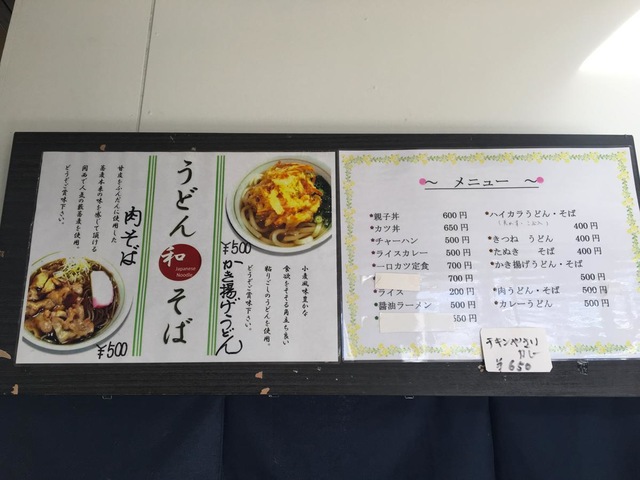 甘皮をふんだんに使用した
蕎麦本来の味を感じて頂ける
関西で人気の藪蕎麦を使用。
どうぞご賞味下さい。
肉そば
¥500
うどん
和
Japanese
Noodle
そば
¥500
かき揚げうどん
小麦風味豊かな
食欲をそそる角立ち良い
粘りごしのうどんを使用。
どうぞご賞味下さい。
～ メニュー ～
*親子丼 600円
*カツ丼 650円
*チャーハン 500円
*ライスカレー 500円
*一口カツ定食 700円
700円
*ライス 200円
*醤油ラーメン 500円
550円
*ハイカラうどん・そば
400円
*きつね うどん 400円
*たぬき そば 400円
*かき揚げうどん・そば
500円
*肉うどん・そば 500円
*カレーうどん 500円
チキンやさい
カレー
¥650